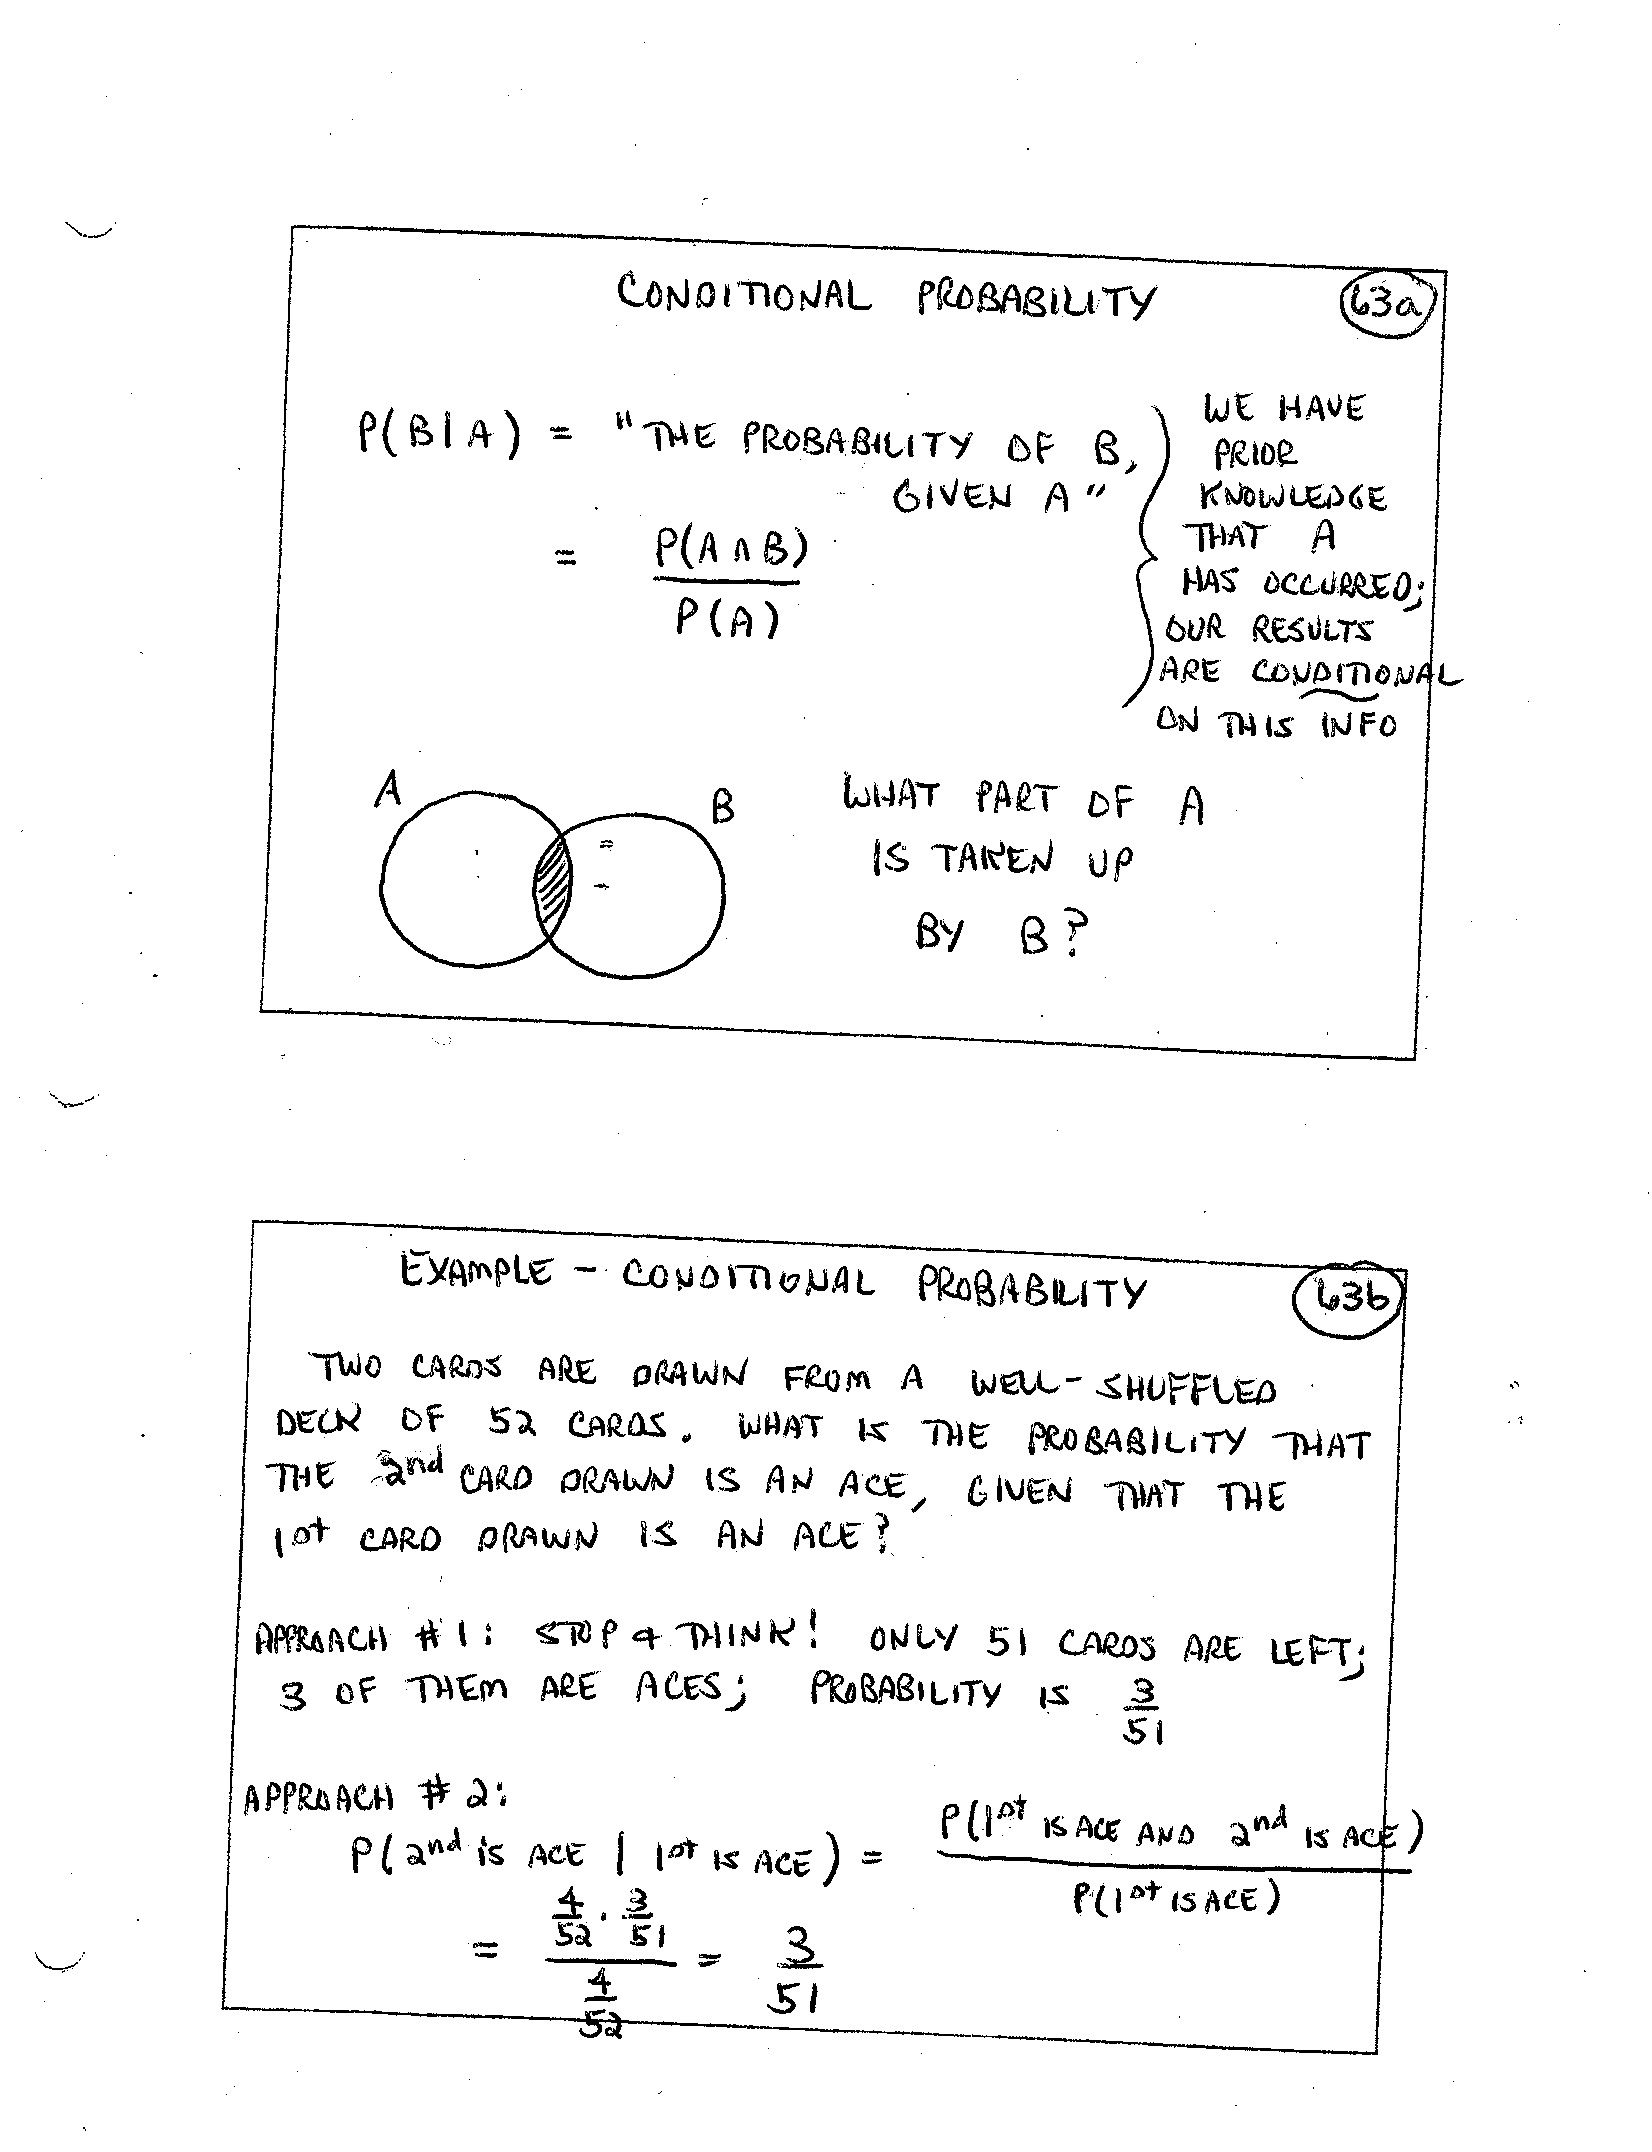 CONDITIONAL PROBABILITY
63a
P(B|A) = "THE PROBABILITY OF B,
GIVEN A"
= P(A∩B)
P(A)
WE HAVE
PRIOR
KNOWLEDGE
THAT A
HAS OCCURRED;
OUR RESULTS
ARE CONDITIONAL
ON THIS INFO
A
B
WHAT PART OF A
IS TAKEN UP
BY B?
EXAMPLE - CONDITIONAL PROBABILITY
63b
TWO CARDS ARE DRAWN FROM A WELL-SHUFFLED
DECK OF 52 CARDS. WHAT IS THE PROBABILITY THAT
THE 2nd CARD DRAWN IS AN ACE, GIVEN THAT THE
1st CARD DRAWN IS AN ACE?
APPROACH #1: STOP & THINK! ONLY 51 CARDS ARE LEFT;
3 OF THEM ARE ACES; PROBABILITY IS 3/51
APPROACH #2:
P(2nd is ACE | 1st IS ACE) = P(1st IS ACE AND 2nd IS ACE)
P(1st IS ACE)
= 4/52 · 3/51
4/52
= 3/51